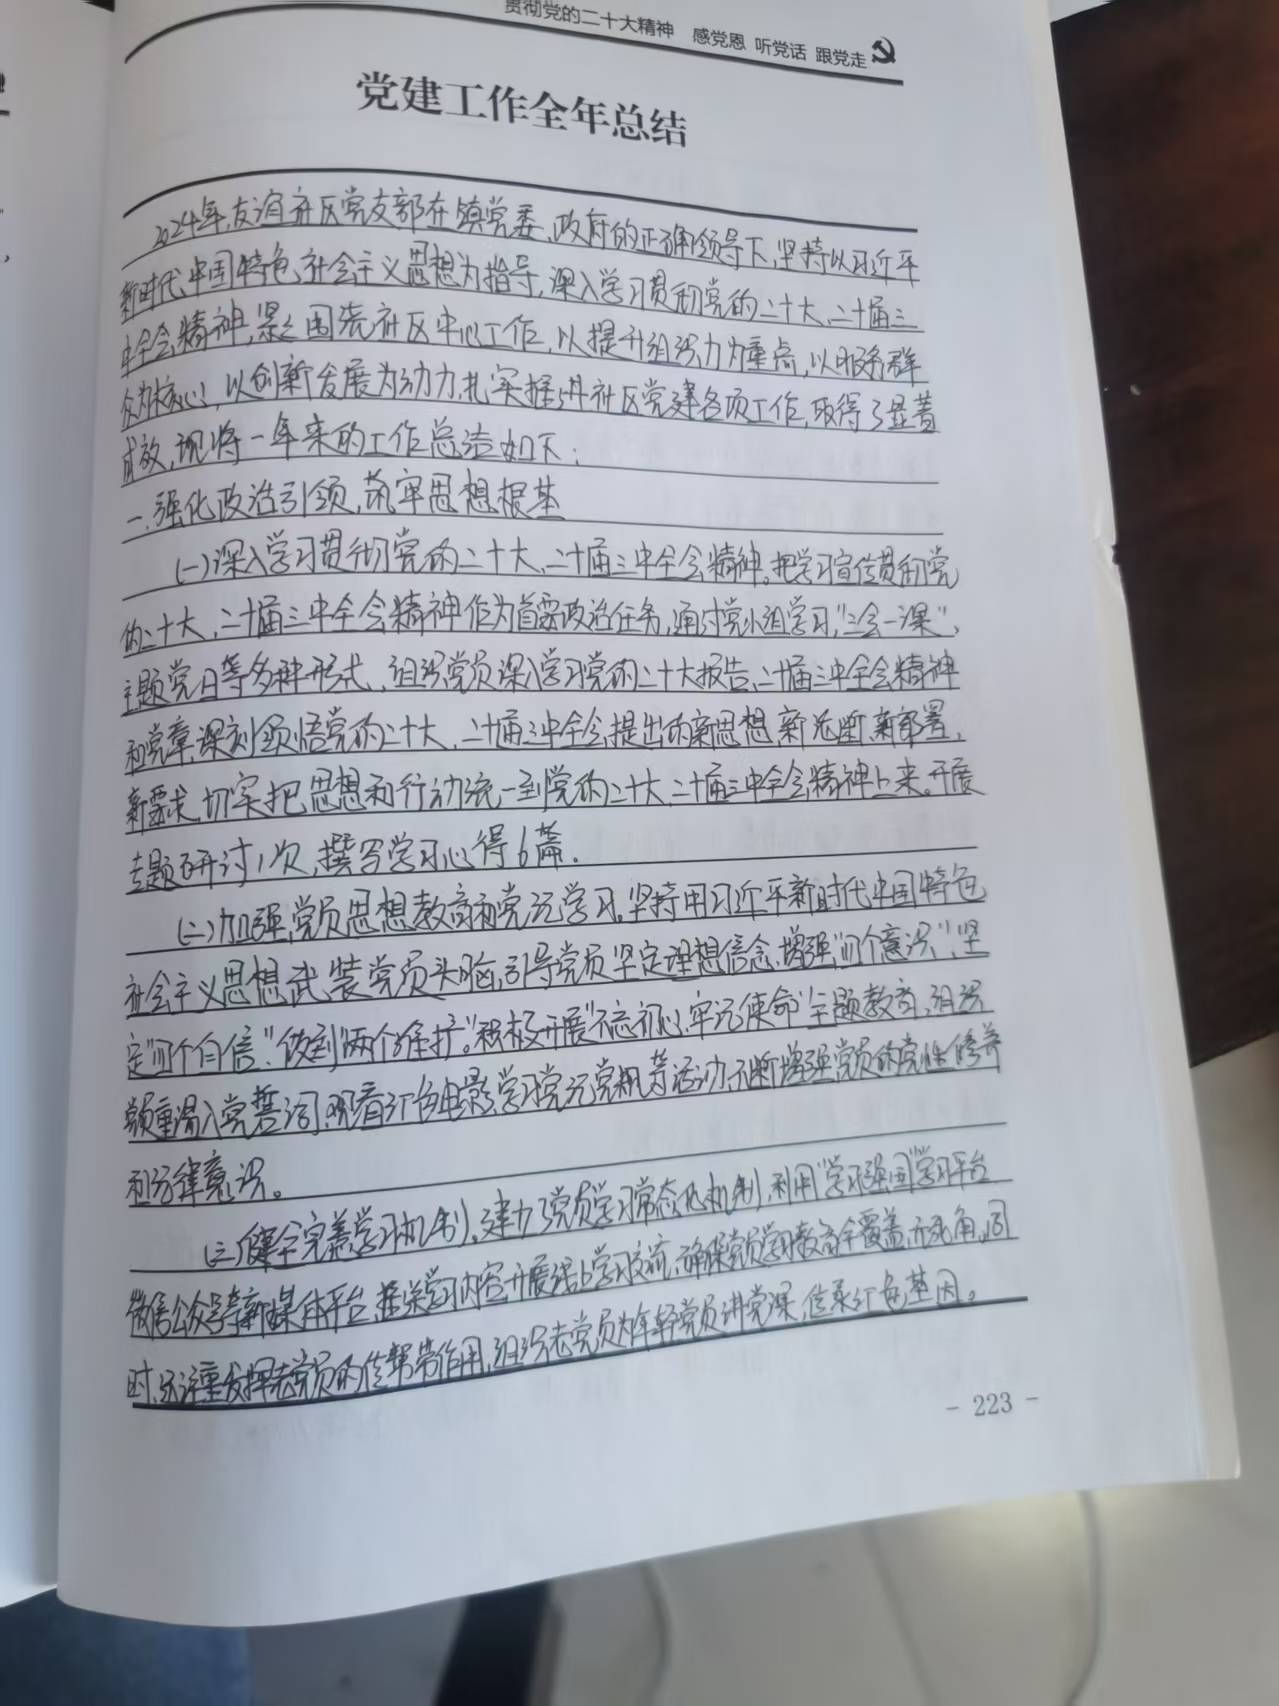 贯彻党的二十大精神 感党恩 听党话 跟党走
党建工作全年总结
2024年,友谊社区党支部在镇党委、政府的正确领导下,坚持以习近平
新时代中国特色社会主义思想为指导,深入学习贯彻党的二十大、二十届三
中全会精神,紧紧围绕社区中心工作,以提升组织力为重点,以服务群
众为核心,以创新发展为动力,扎实推进社区党建各项工作,取得了显著
成效,现将一年来的工作总结如下:
一、强化政治引领,筑牢思想根基
(一)深入学习贯彻党的二十大、二十届三中全会精神。把学习宣传贯彻党
的二十大、二十届三中全会精神作为首要政治任务,通过党小组学习,“三会一课”、
主题党日等多种形式,组织党员深入学习党的二十大报告、二十届三中全会精神
和党章,深刻领悟党的二十大、二十届三中全会提出的新思想、新论断、新部署、
新要求,切实把思想和行动统一到党的二十大、二十届三中全会精神上来。开展
专题研讨1次,撰写学习心得6篇.
(二)加强党员思想教育和党记学习。坚持用习近平新时代中国特色
社会主义思想武装党员头脑,引导党员坚定理想信念,增强“四个意识”,坚
定“四个自信”,做到“两个维护”。积极开展“不忘初心、牢记使命”主题教育,组织
党员重温入党誓词,观看红色电影,学习党记党规等活动,不断增强党员的党性修养
和纪律意识。
(三)健全完善学习机制。建立了党员学习常态化机制,利用“学习强国”学习平台
微信公众号等新媒体平台,推送学习内容,开展线上学习交流,确保党员学习教育全覆盖,无死角。同
时,还注重发挥老党员的传帮带作用,组织老党员为年轻党员讲党课,传承红色基因。
- 223 -